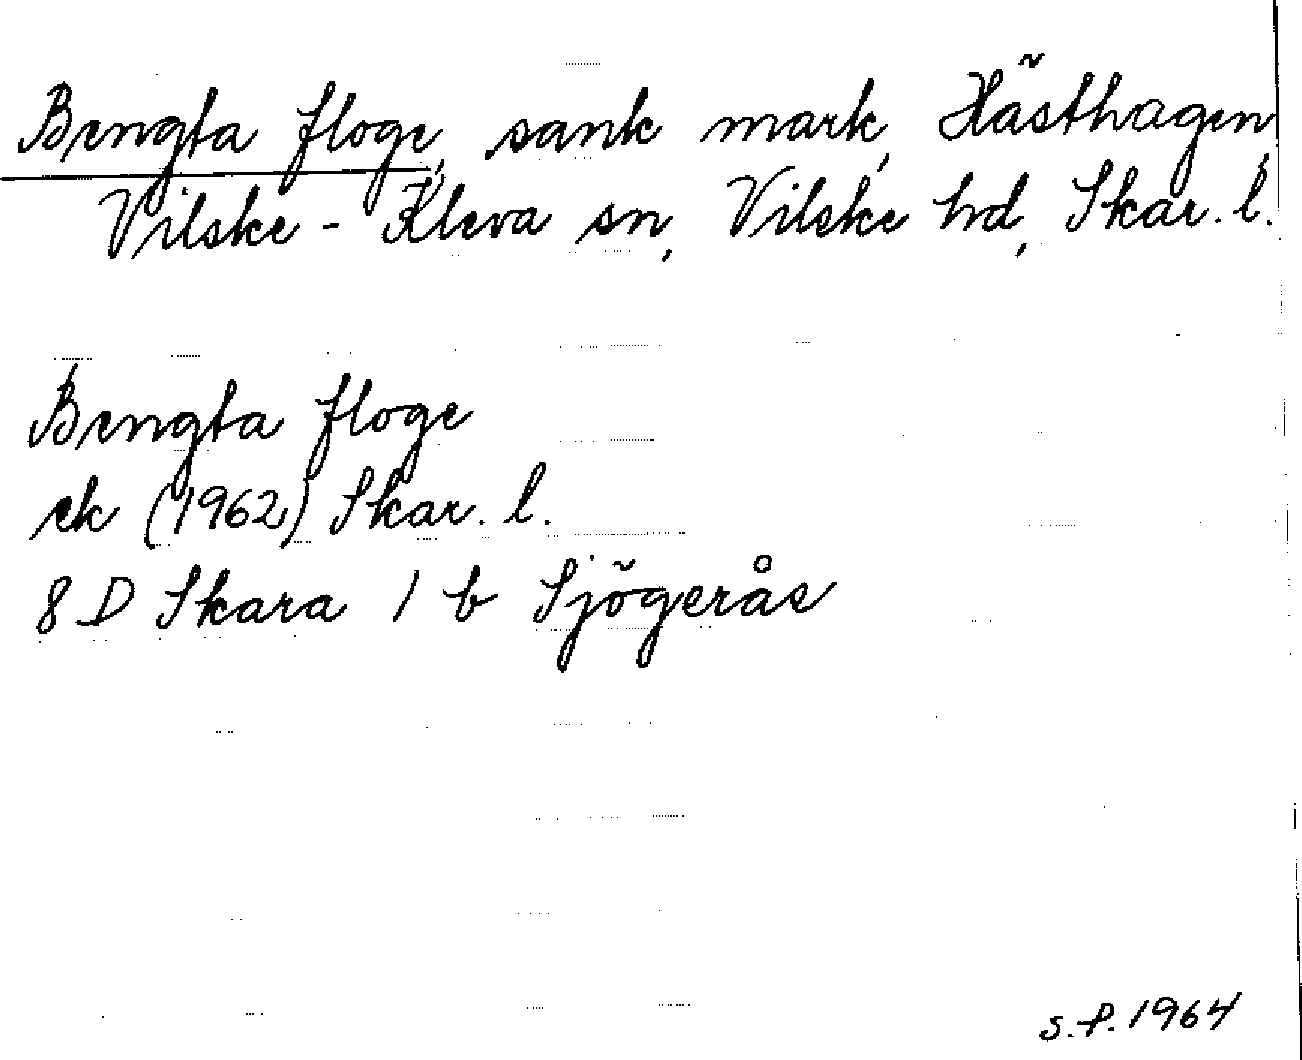 Bengta floge, sank mark, Hästhagen,
Vilske-Kleva sn, Vilske hd, Skar. l.
Bengta floge
ek (1962) Skar. l.
8 D Skara 1 b Sjögerås
S.F. 1964